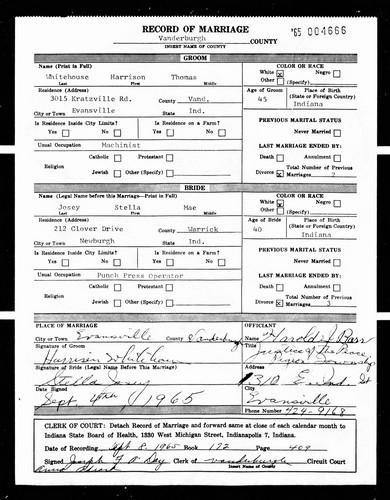 RECORD OF MARRIAGE '65 004666
Vanderburgh COUNTY
INSERT NAME OF COUNTY
GROOM
Name (Print in Full) COLOR OR RACE
Whitehouse Harrison Thomas White Negro
Last First Middle Other (Specify)
Residence (Address) Age of Groom Place of Birth
3015 Kratzville Rd. County Vand. 45 (State or Foreign Country)
Evansville Ind. Indiana
City or Town State
Is Residence Inside City Limits? Is Residence on a Farm? PREVIOUS MARITAL STATUS
Yes No Yes No Never Married
Usual Occupation Machinist LAST MARRIAGE ENDED BY:
Catholic Protestant Death Annulment
Religion Total Number of Previous
Jewish Other (Specify) Divorce Marriages 2
BRIDE
Name (Legal Name before this Marriage—Print in Full) COLOR OR RACE
Josey Stella Mae White Negro
Last First Middle Other (Specify)
Residence (Address) Age of Bride Place of Birth
212 Clover Drive County Warrick 40 (State or Foreign Country)
City or Town Newburgh State Ind. Indiana
Is Residence Inside City Limits? Is Residence on a Farm? PREVIOUS MARITAL STATUS
Yes No Yes No Never Married
Usual Occupation Punch Press Operator LAST MARRIAGE ENDED BY:
Catholic Protestant Death Annulment
Religion Total Number of Previous
Jewish Other (Specify) Divorce Marriages 3
PLACE OF MARRIAGE OFFICIANT
City or Town Evansville County Vanderburgh Harold J
Signature of Groom Title Justice of the Peace
Harrison Whitehouse
Signature of Bride (Legal Name Before This Marriage) Address
Stella Josey 310 E St
Date Signed City
Sept 4th 1965 Evansville
Phone Number 424-9168
CLERK OF COURT: Detach Record of Marriage and forward same at close of each calendar month to
Indiana State Board of Health, 1330 West Michigan Street, Indianapolis 7, Indiana.
Date of Recording Sept 8, 1965 Book 172 Page 409
Signed Joseph F O Day Clerk of Vanderburgh Circuit Court
Insert Name of County